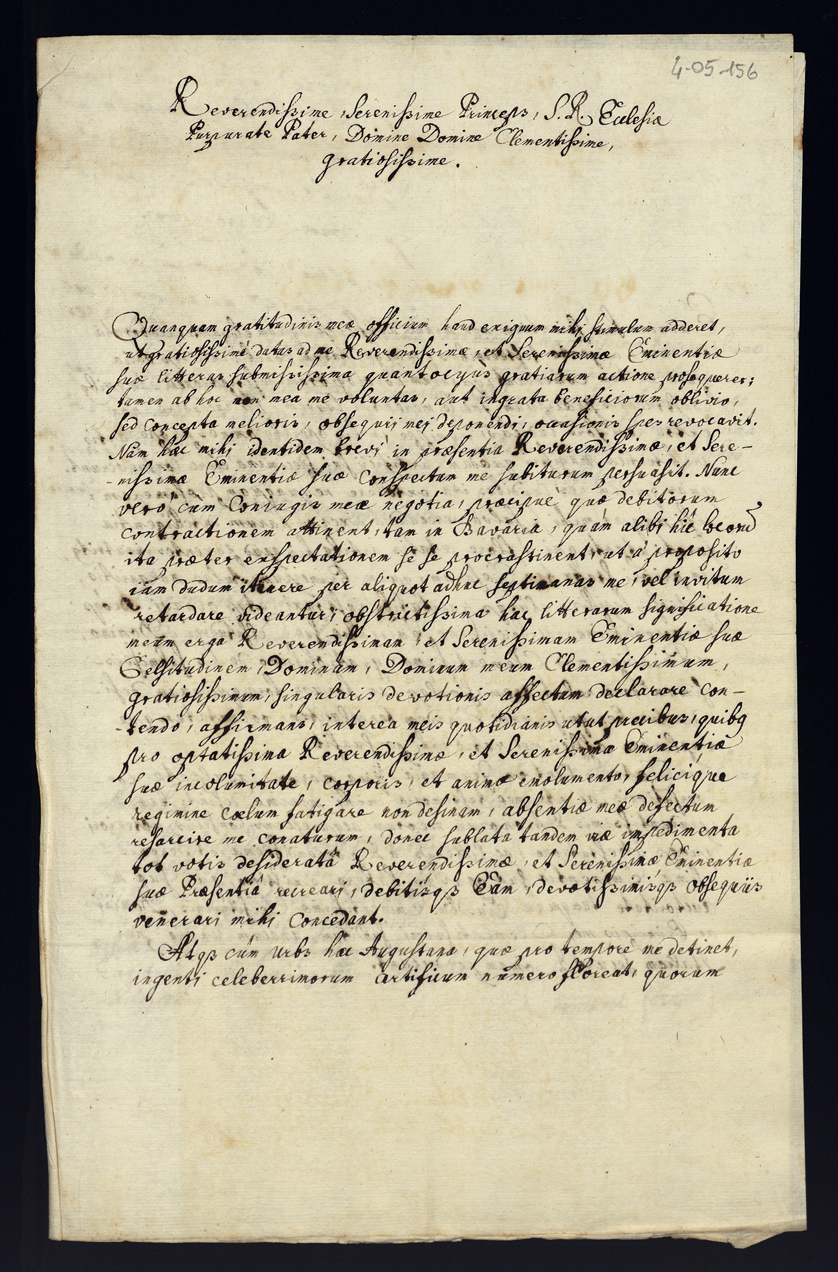 4-05-156
Reverendissime, Serenissime Princeps, S. R. Ecclesiæ
Purpurate Pater, Domine Domine Clementissime,
gratiosissime.
Quanquam gratitudinis meæ officium haud exiguum mihi stimulum adderet,
ut gratiosissimè datas ad me Reverendissimæ, et Serenissimæ Eminentiæ
suæ litteras submississima quantocyus gratiarum actione prosequerer;
tamen ab hoc non mea me voluntas, aut ingrata beneficiorum oblivio,
sed concepta melioris, obsequii mei deponendi, occasionis spes revocavit.
Nam hæc mihi identidem brevi in præsentia Reverendissimæ, et Sere-
-nissimæ Eminentiæ suæ conspectum me subiturum persuasit. Nunc
verò cùm Coniugis meæ negotia, præcipuè quæ debitorum
contractionem attinent, tam in Bavaria, quàm alibi hîc locorũ
ita præter exspectationem se se procrastinent, ut à proposito
iam dudum itinere per aliquot adhuc septimanas me, vel invitum
retardare videantur, obstrictissima hac litterarum significatione
meum erga Reverendissimam, et Serenissimam Eminentiæ suæ
Celsitudinem, Dominum, Dominum meum Clementissimum,
gratiosissimum, singularis devotionis affectum declarare con-
-tendo, affirmans, interea meis quotidianis utut precibus, quibq
pro optatissima Reverendissimæ, et Serenissimæ Eminentiæ
suæ incolumitate, corporis, et animæ emolumento, felicique
regimine cœlum fatigare non desinam, absentiæ meæ defectum
resarcire me conaturum, donec sublata tandem viæ impedimenta
tot votis desideratâ Reverendissimæ, et Serenissimæ Eminentiæ
suæ Præsentiâ recreari, debitisqs Eam, devotissimisqs obsequiis
venerari mihi concedant.
Atqs cùm urbs hæc Augustana, quæ pro tempore me detinet,
ingenti celeberrimorum artificum numero floreat, quorum